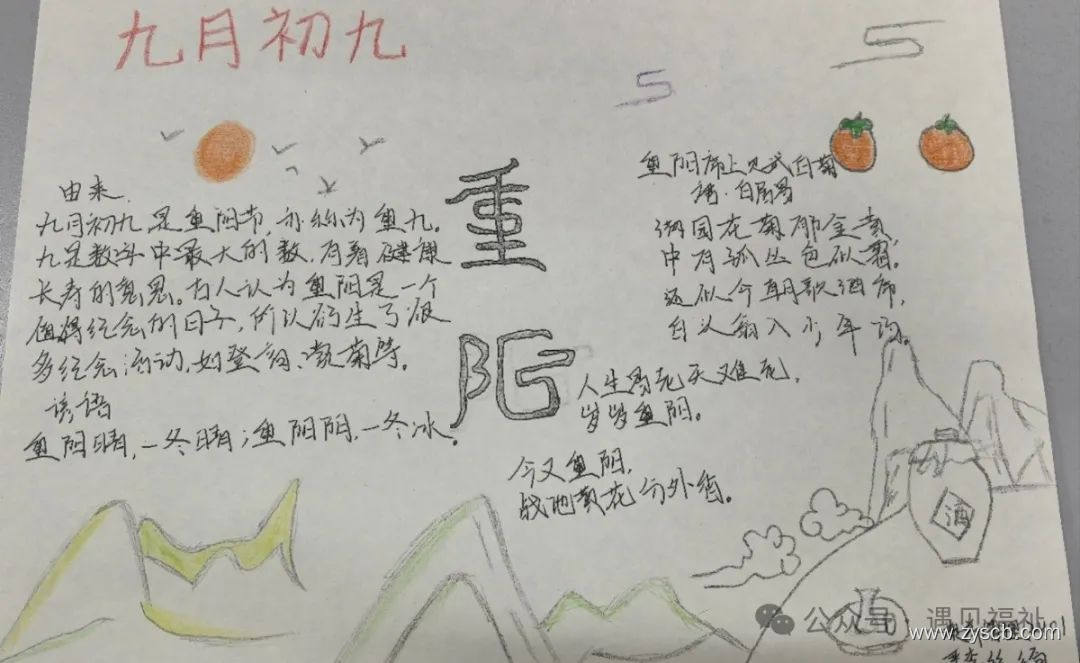 九月初九
由来
九月初九是重阳节,亦称为重九。
九是数字中最大的数,有着健康
长寿的寓意。古人认为重阳是一个
值得纪念的日子,所以衍生了很
多纪念活动,如登高、赏菊等。
谚语
重阳晴,一冬晴;重阳阴,一冬冰。
重
阳
重阳席上见白菊
唐·白居易
满园花菊郁金黄,
中有孤丛色似霜。
还似今朝歌酒席,
白头翁入少年场。
人生易老天难老,
岁岁重阳。
今又重阳,
战地黄花分外香。
酒
公众号·遇见福祉
www.zyscb.com